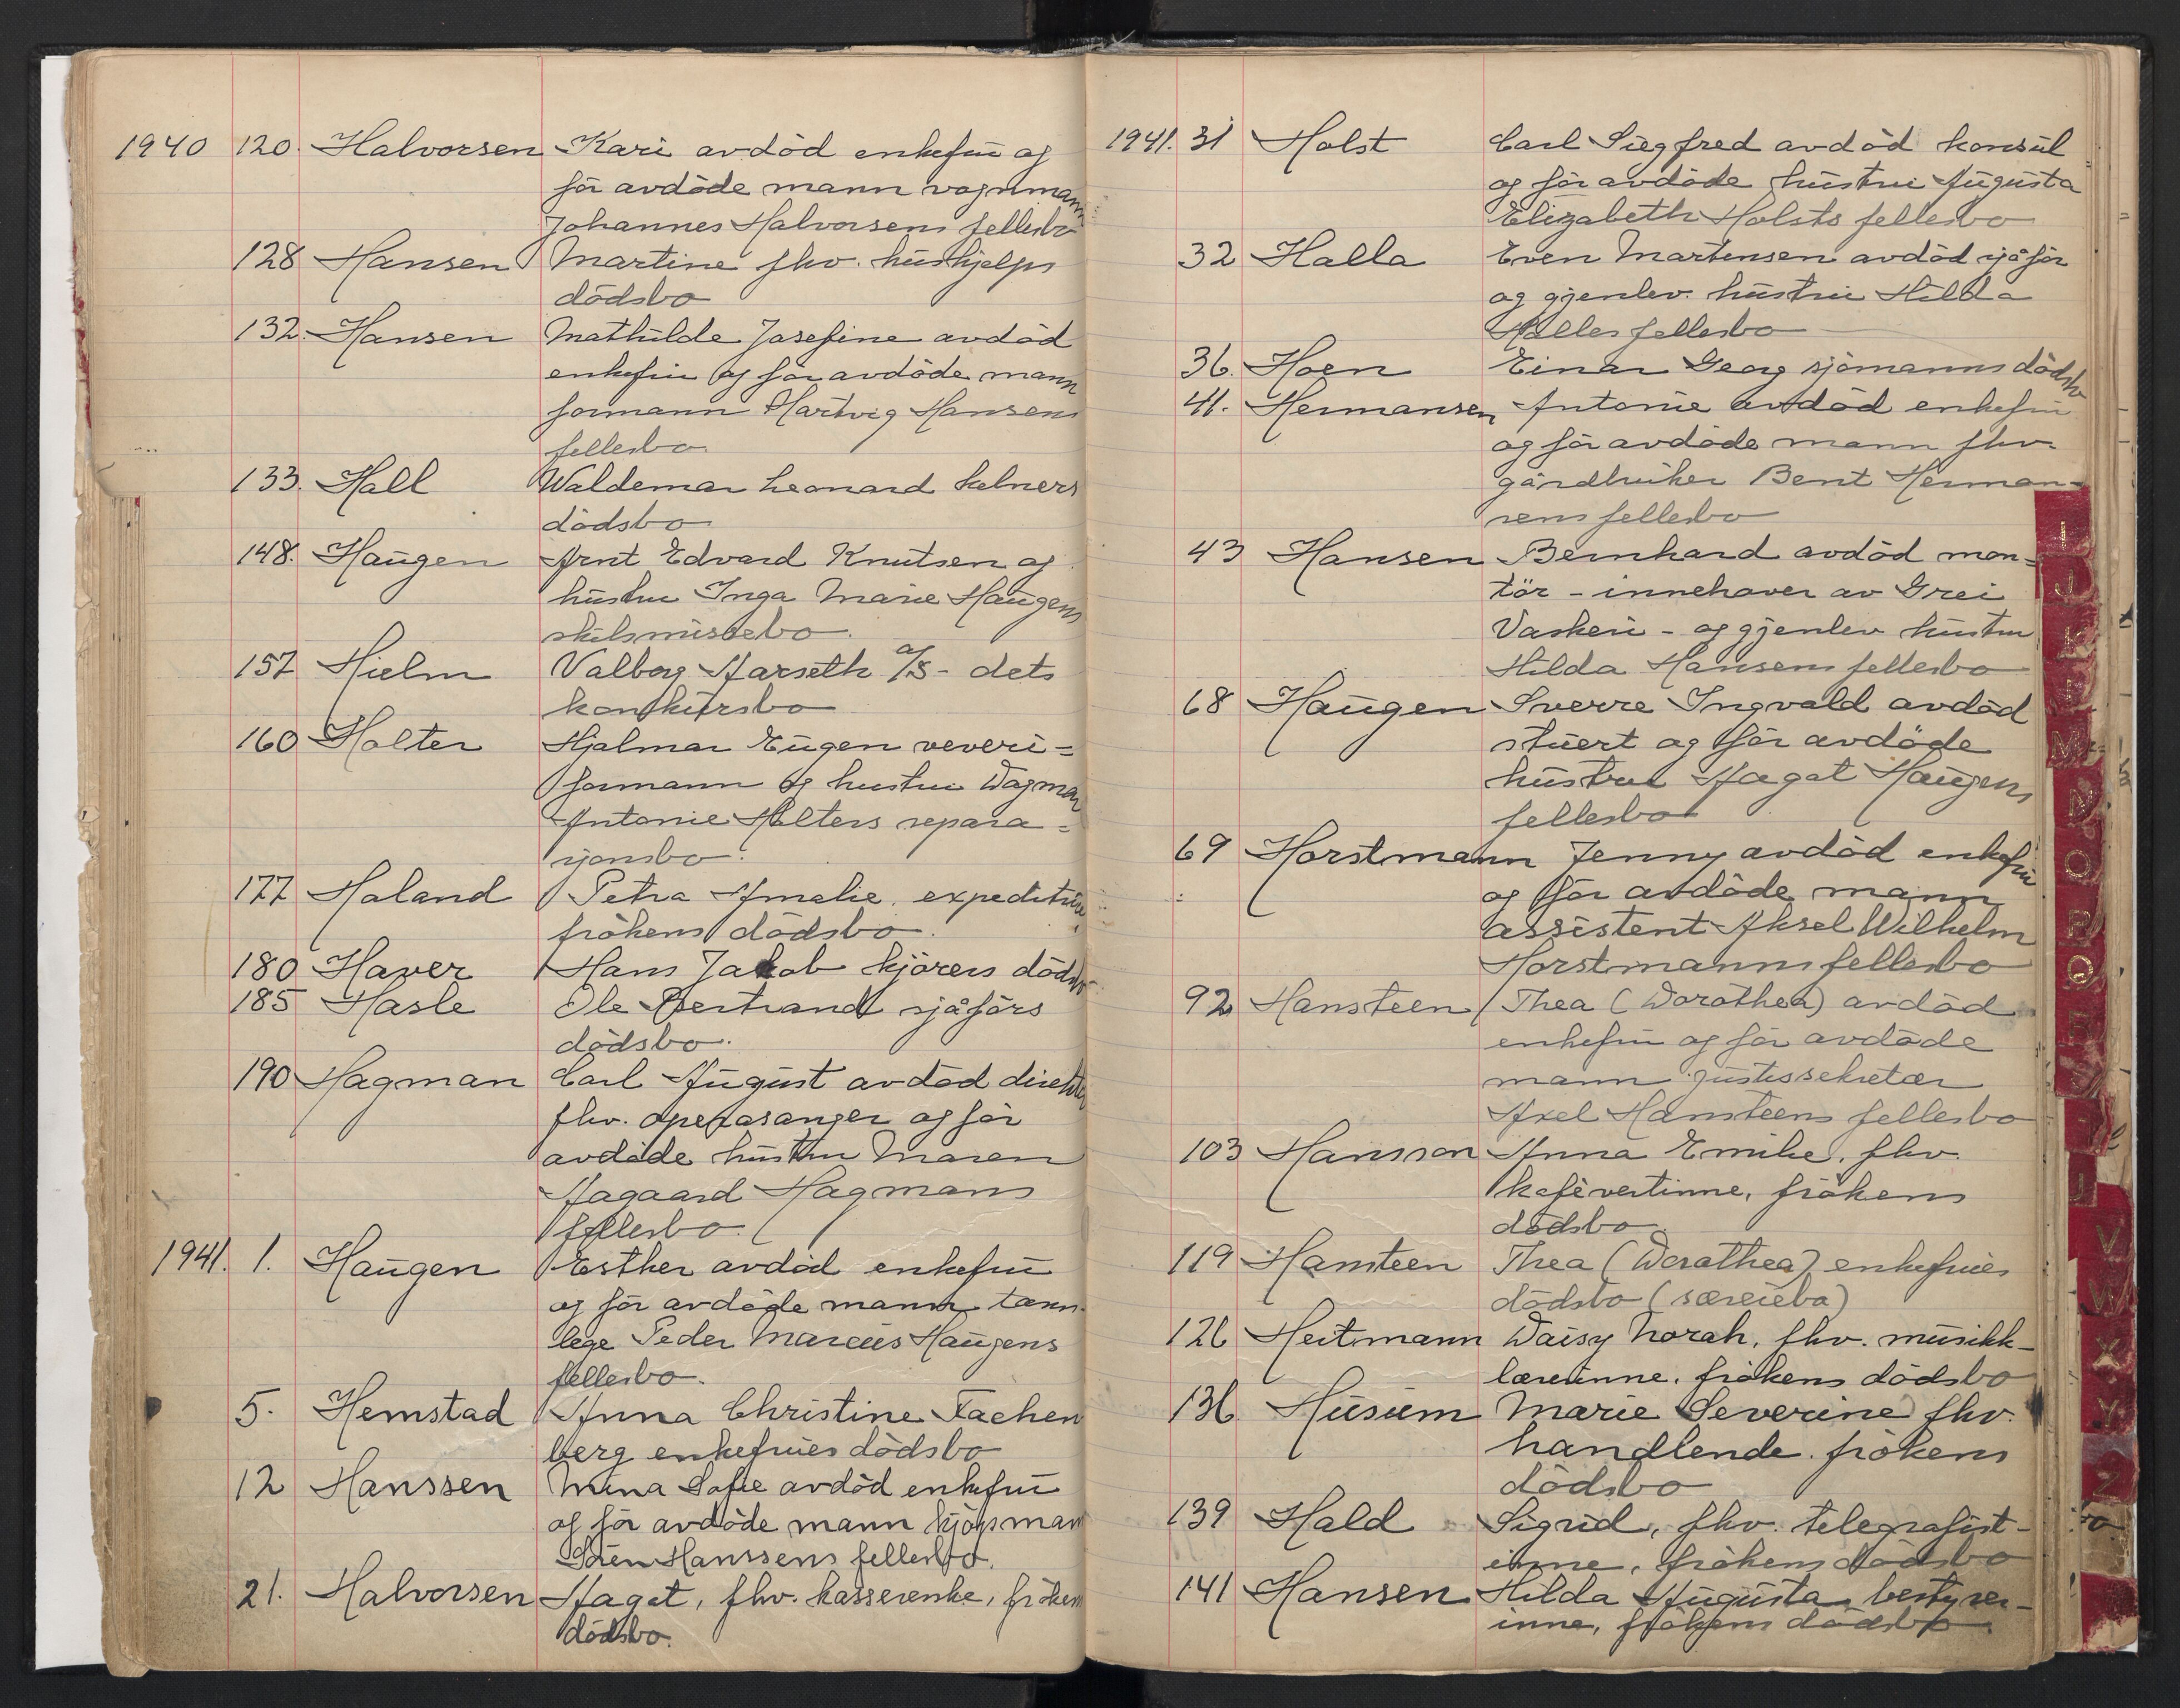 1940 120. Halvorsen Kari avdöd enkefru og
för avdöde mann vognmann
Johannes Halvorsens fellesbo
128 Hansen Martine fhv. hushjelps
dödsbo
132. Hansen Mathilde Josefine avdöd
enkefru og för avdöde mann
formann Hartvig Hansens
fellesbo
133. Hall Waldemar Leonard kelners
dödsbo
148. Haugen Arnt Edvard Knutsen og
hustru Inga Marie Haugens
skilsmissebo.
157 Hielm Valborg Harseth A/S - dets
konkursbo
160 Holter Hjalmar Eugen veveri=
formann og hustru Dagmar
Antonie Holters separa=
sjonsbo.
177 Haland Petra Amalie, expeditrise
frökens dödsbo.
180 Haver Hans Jakob kjörers dödsbo
185 Hasle Ole Bertrand sjåförs
dödsbo.
190 Hagman Carl August avdöd direktör
fhv. operasanger og för
avdöde hustru Maren
Aagaard Hagmans
fellesbo.
1941. 1. Haugen Esther avdöd enkefru
og för avdöde mann tann-
lege Peder Marcus Haugens
fellesbo.
5. Hemstad Anna Christine Fachen
berg enkefrues dödsbo
12 Hanssen Mina Sofie avdöd enkefru
og för avdöde mann kjöpmann
Sören Hanssens fellesbo.
21. Halvorsen Aagot, fhv. kasserenke, fröken
dödsbo.
1941. 31 Holst Carl Siegfred avdöd konsul
og för avdöde hustru Augusta
Elizabeth Holsts fellesbo
32 Halla Even Martensen avdöd sjåför
og gjenlev. hustru Hilda
Halles fellesbo
36. Hoen Einar Georg sjömanns dödsbo
41. Hermansen Antonie avdöd enkefru
og för avdöde mann fhv.
gårdbruker Bent Herman=
sens fellesbo
43 Hansen Bernhard avdöd mon=
tör - innehaver av Grei
Vaskeri - og gjenlev hustru
Hilda Hansens fellesbo
68 Haugen Sverre Ingvald avdöd
stuert og för avdöde
hustru Aagot Haugens
fellesbo
69 Horstmann Jenny avdöd enkefru
og för avdöde mann
assistent Aksel Wilhelm
Horstmanns fellesbo
92 Hansteen Thea (Dorothea) avdöd
enkefru og för avdöde
mann justissekretær
Axel Hansteens fellesbo
103 Hansson Anna Emilie, fhv.
kafévertinne, frökens
dödsbo.
119 Hansteen Thea (Dorothea) enkefrues
dödsbo (særeiebo)
126 Heitmann Daisy Norah, fhv. musikk-
lærerinne, frökens dödsbo
136 Husum Marie Severine fhv.
handlende. frökens
dödsbo
139 Hald Sigrid, fhv. telegrafist-
inne, frökens dödsbo
141 Hansen Hilda Augusta bestyrer-
inne, frökens dödsbo.
I
J
K
L
M
N
O
P
Q
R
V
W
X
Y
Z